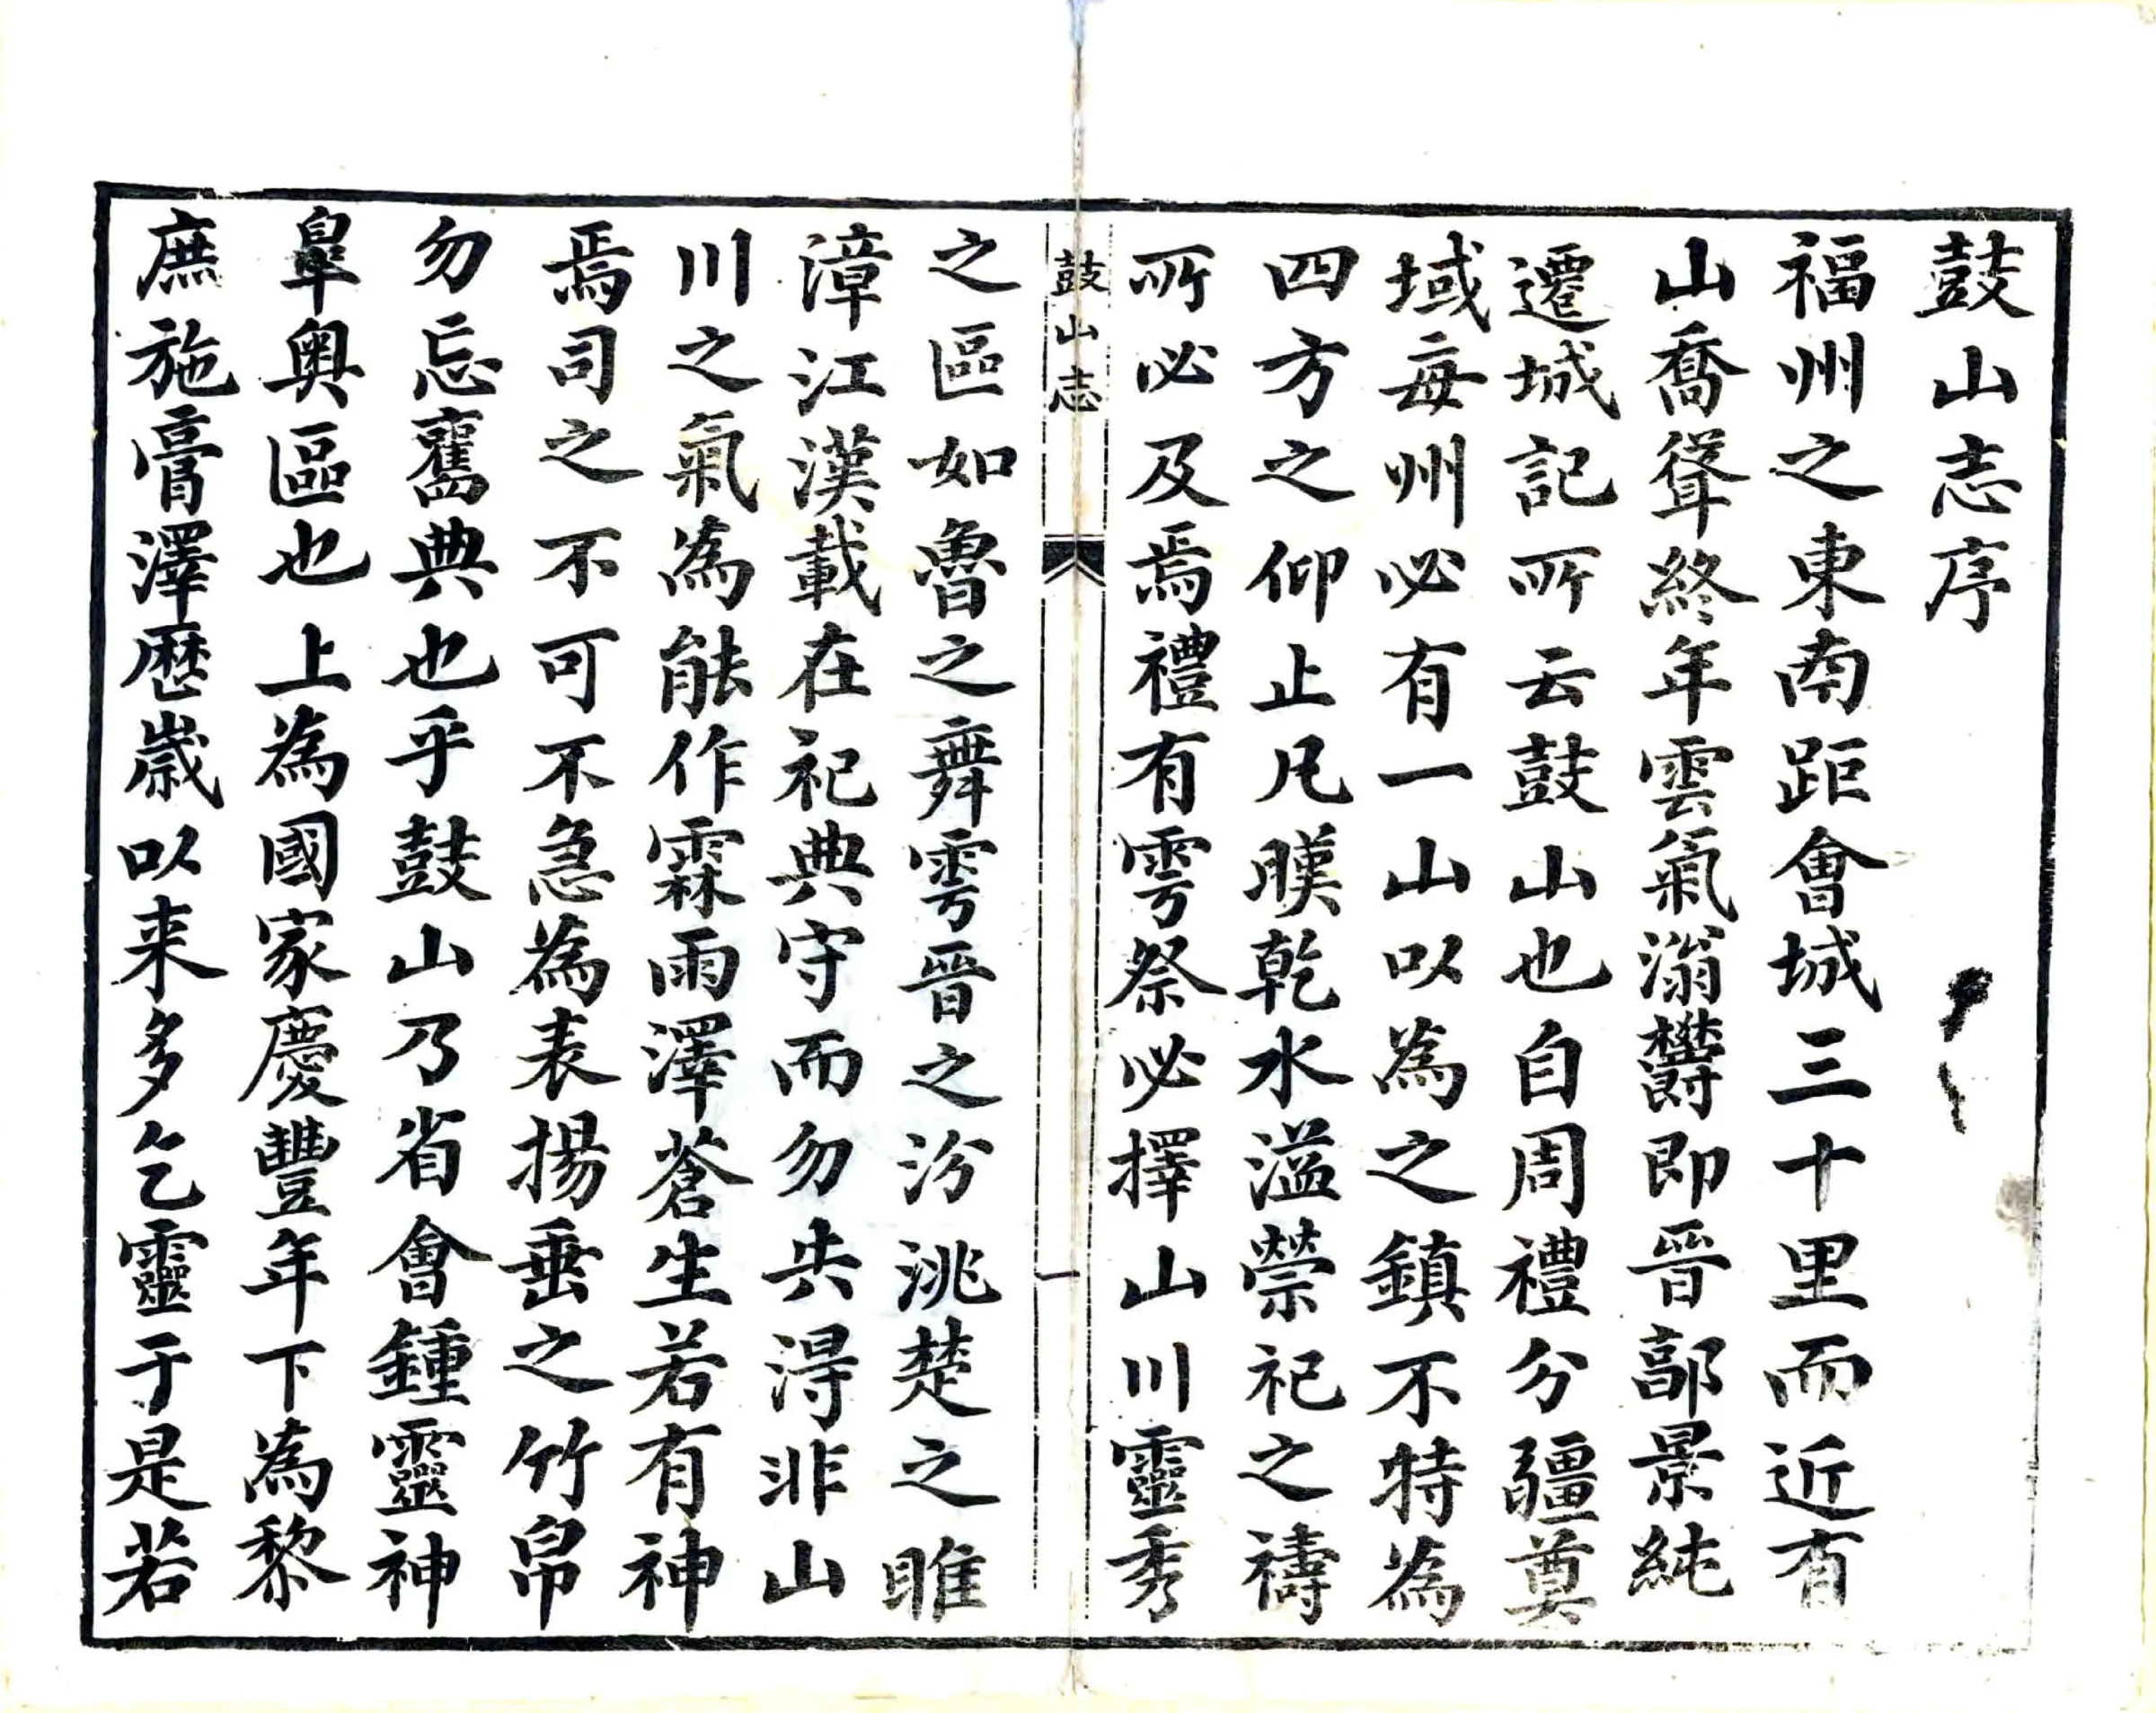 鼓山志序
福州之東南距會城三十里而近有
山喬聳終年雲氣滃欝即晉郭景純
遷城記所云鼓山也自周禮分疆奠
域每州必有一山以為之鎮不特為
四方之仰止凡暵乾水溢禜祀之禱
所必及焉禮有雩祭必擇山川靈秀
鼓山志
一
之區如魯之舞雩晉之汾洮楚之睢
漳江漢載在祀典守而勿失得非山
川之氣為能作霖雨澤蒼生若有神
焉司之不可不急為表揚垂之竹帛
勿忘舊典也乎鼓山乃省會鍾靈神
皐奧區也上為國家慶豐年下為黎
庶施膏澤歷歲以来多乞靈于是若